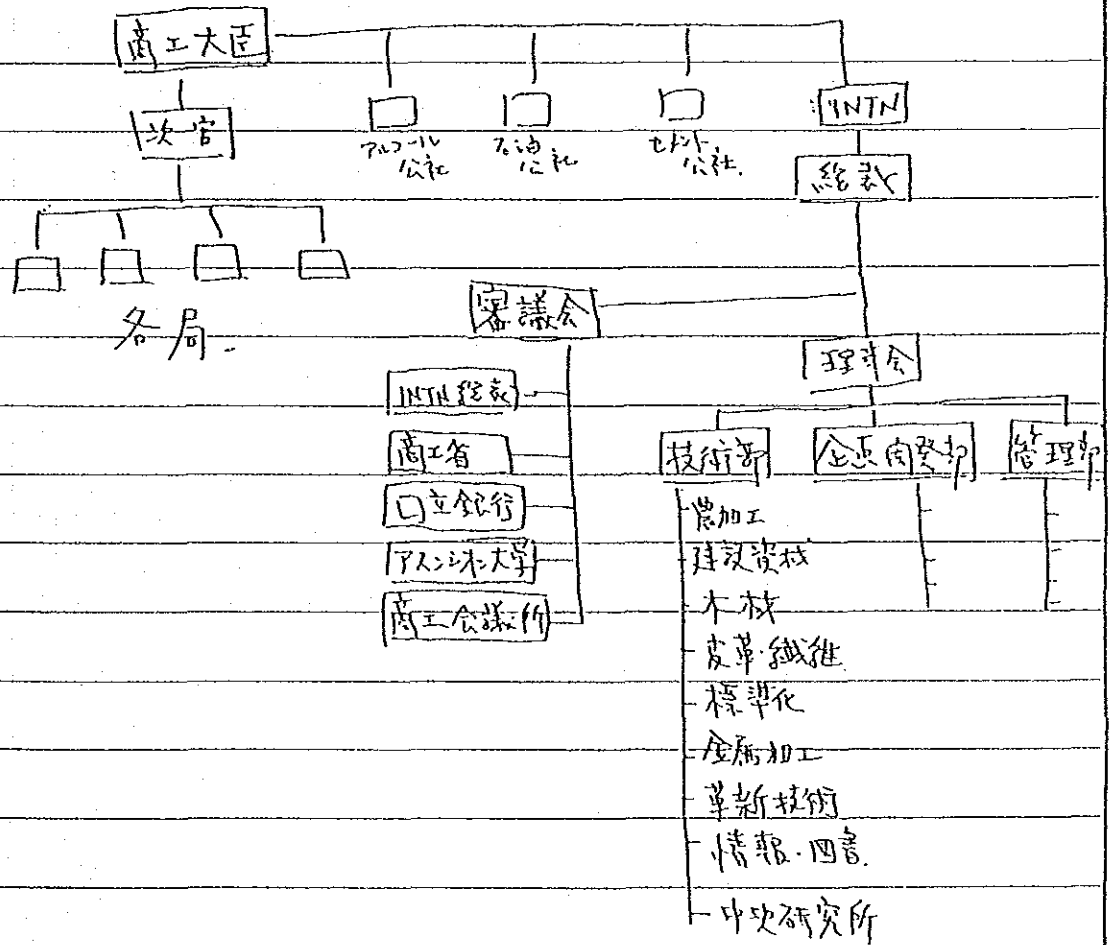 商工大臣
次官
アルコール
公社
石油
公社
セメント
公社.
INTN
総裁
各局.
審議会
理事会
INTN総裁
商工省
口立銀行
アスンシオン大学
商工会議所
技術部
企画開発部
管理部
農加工
建設資材
木材
皮革・繊維
標準化
金属加工
革新技術
情報・図書.
中央研究所